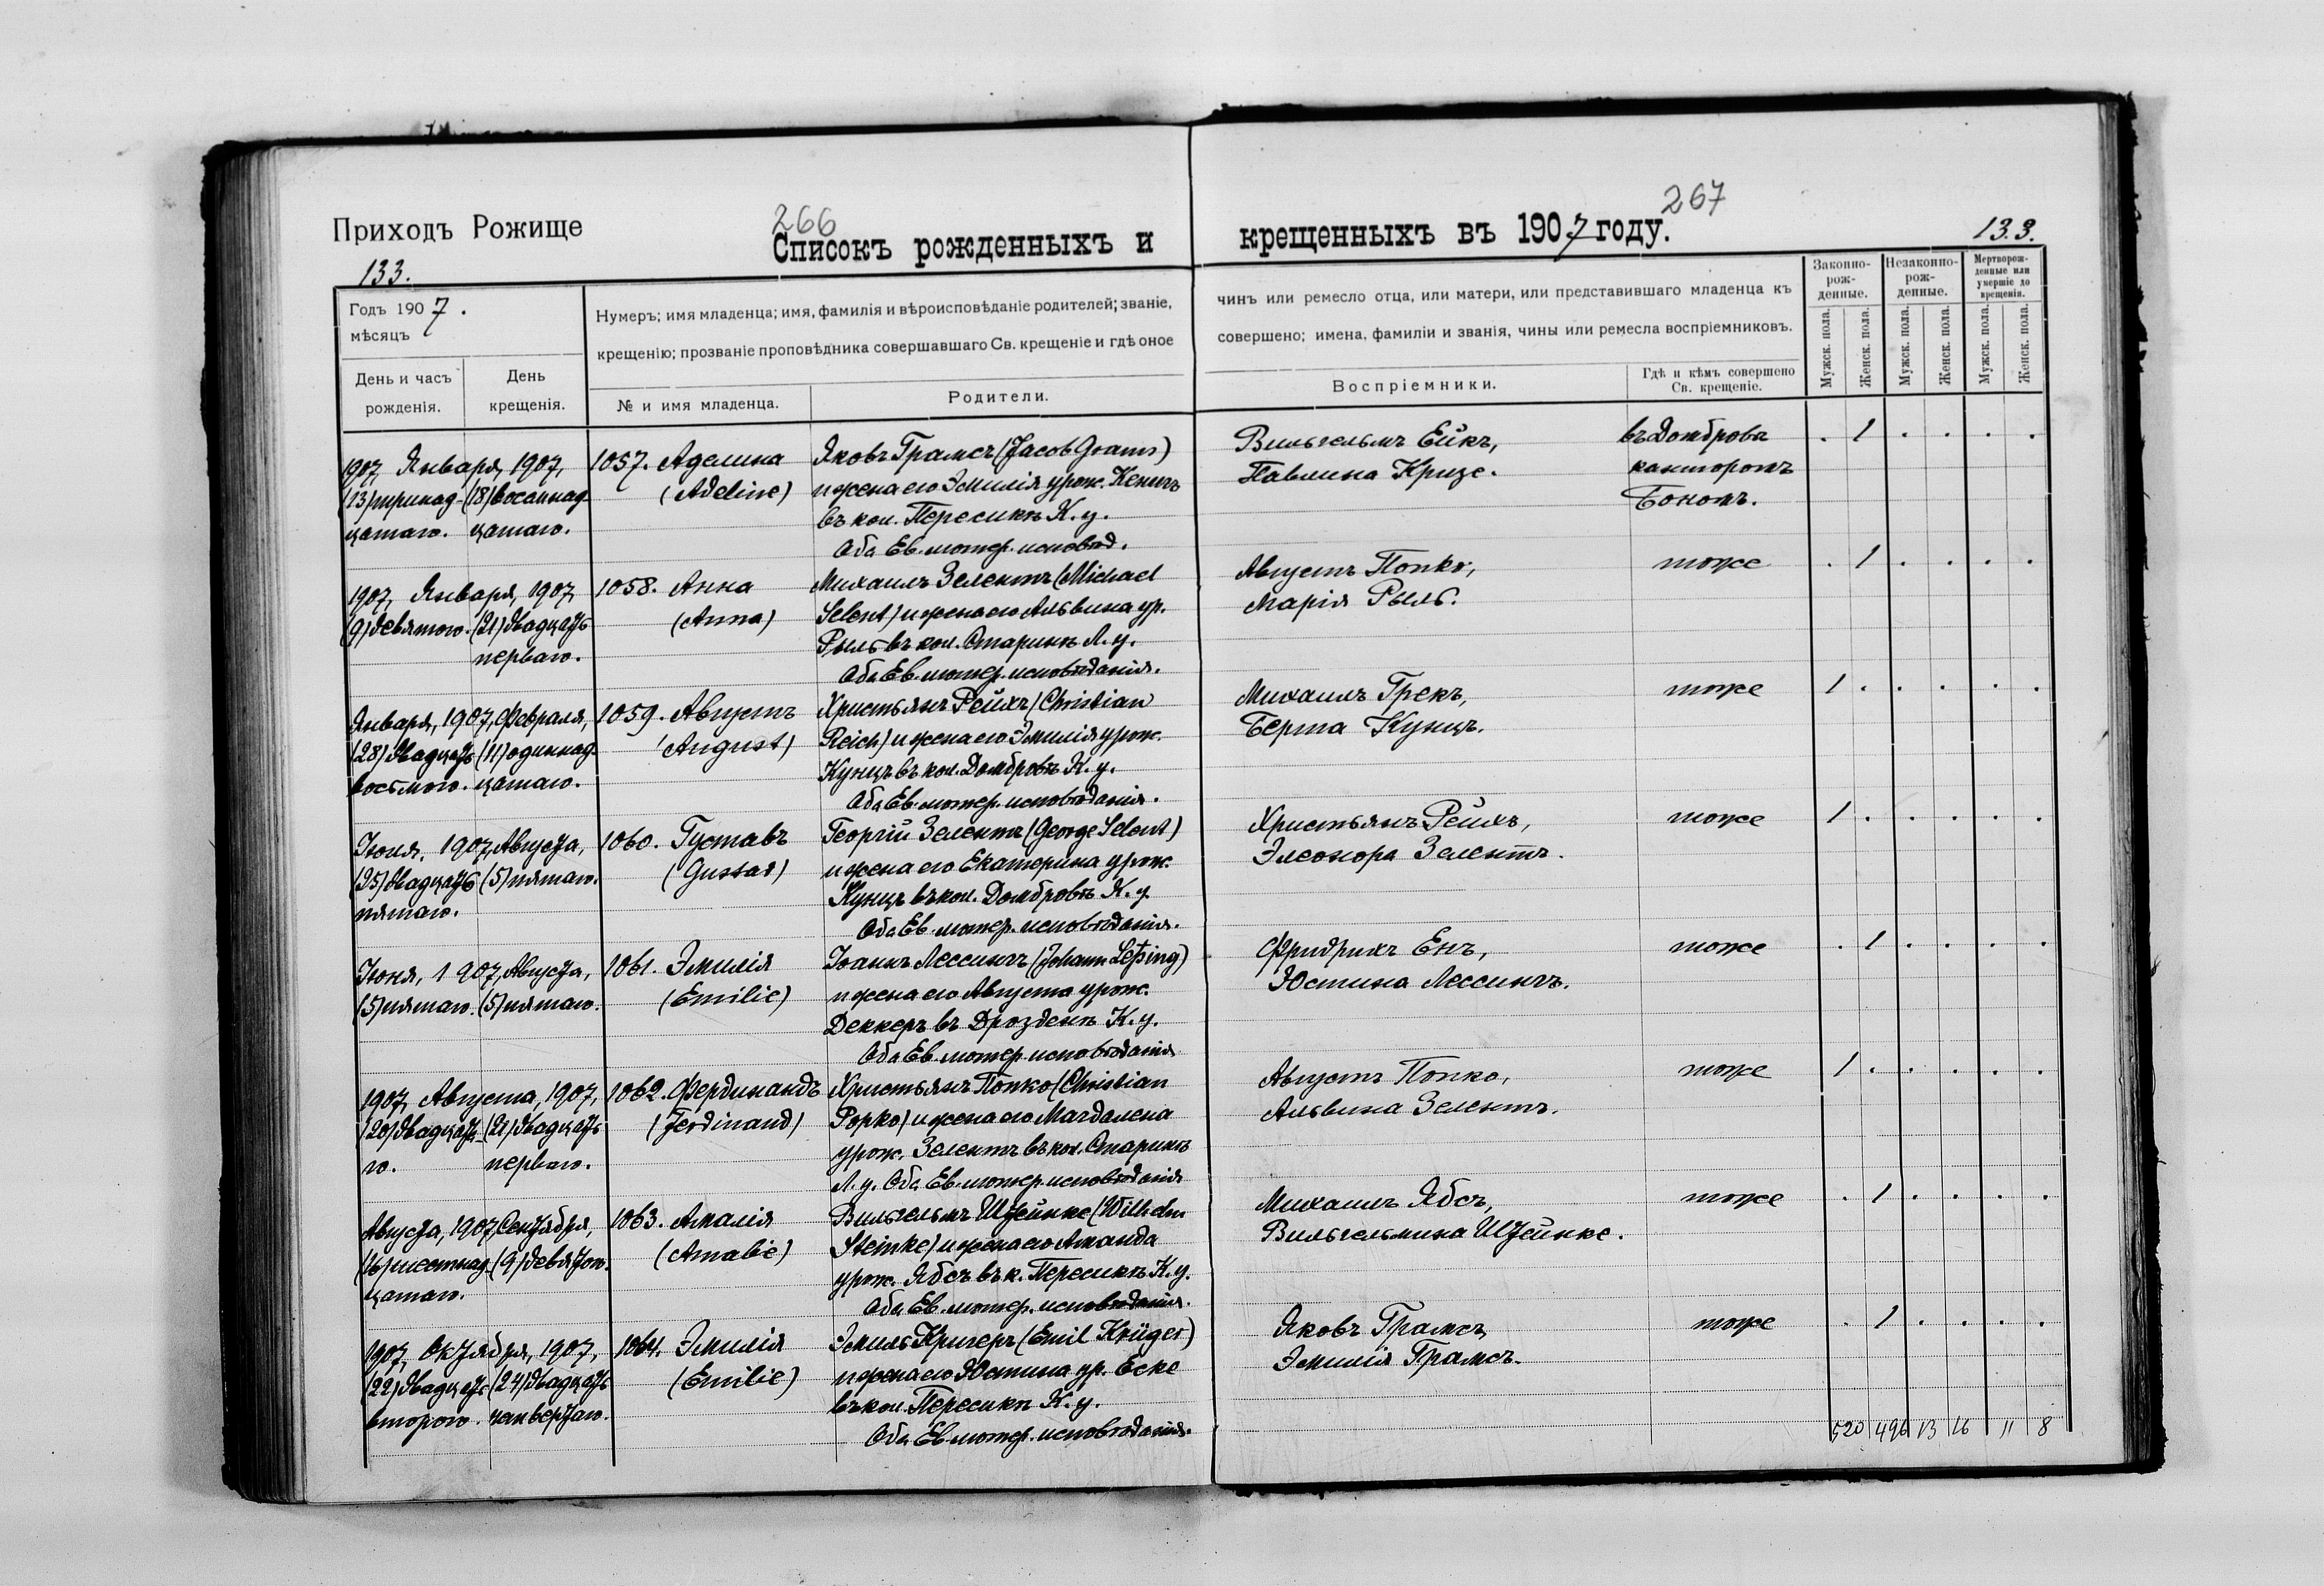 266
267
Приходъ Рожище
Списокъ рожденныхъ и
крещенныхъ въ 1907 году.
133.
133.
Годъ 1907.
мѣсяцъ
Нумеръ; имя младенца; имя, фамилія и вѣроисповѣданіе родителей; званіе,
крещенію; прозваніе проповѣдника совершавшаго Св. крещеніе и гдѣ оное
День и часъ
рожденія.
День
крещенія.
№ и имя младенца.
Родители.
чинъ или ремесло отца, или матери, или представившаго младенца къ
совершено; имена, фамиліи и званія, чины или ремесла воспріемниковъ.
Воспріемники.
Гдѣ и кѣмъ совершено
Св. крещеніе.
Законно-
рож-
денные.
Незаконно-
рож-
денные.
Мертворож-
денные или
умершіе до
крещенія.
Мужск. пола.
Женск. пола.
Мужск. пола.
Женск. пола.
Мужск. пола.
Женск. пола.
1907, Января, 1907,
(13) тринад- (18) восемнад-
цатаго. цатаго.
1057. Аделина
(Adeline)
Яковъ Грамсъ (Jacob Grams)
и жена его Эмилія урож. Кенигъ
въ кол. Пересикѣ К. у.
Оба Ев.-лютер. исповѣд.
Вильгельмъ Ейкъ,
Павлина Кризе.
въ Домбровѣ
канторомъ
Бономъ.
. 1 . . . .
1907, Января, 1907
(9) девятого. (21) двадцать
перваго.
1058. Анна
(Anna)
Михаилъ Зелентъ (Michael
Selent) и жена его Альвина ур.
Рыль въ кол. Старикѣ Л. у.
Оба Ев.-лютер. исповѣданія.
Августъ Попко,
Марія Рыль.
тоже
. 1 . . . .
Января, 1907, Февраля,
(28) двадцать (11) одиннад-
восьмого. цатаго.
1059. Августъ
(August)
Христьянъ Рейхъ (Christian
Reich) и жена его Эмилія урож.
Кунцъ въ кол. Домбровѣ К. у.
Оба Ев.-лютер. исповѣданія.
Михаилъ Грекъ,
Берта Кунцъ.
тоже
1 . . . . .
Іюня, 1907, Августа,
(25) двадцать (5) пятаго.
пятаго.
1060. Густавъ
(Gustav)
Георгій Зелентъ (George Selent)
и жена его Екатерина урож.
Кунцъ въ кол. Домбровѣ К. у.
Оба Ев.-лютер. исповѣданія.
Христьянъ Рейхъ,
Элеонора Зелентъ.
тоже
1 . . . . .
Іюня, 1907, Августа,
(5) пятаго. (5) пятаго.
1061. Эмилія
(Emilie)
Іоаннъ Лессингъ (Johann Leßing)
и жена его Августа урож.
Деккеръ въ Дрозденѣ К. у.
Оба Ев.-лютер. исповѣданія
Фридрихъ Енъ,
Юстина Лессингъ.
тоже
. 1 . . . .
1907, Августа, 1907,
(20) двадцата- (21) двадцать
го. перваго.
1062. Фердинандъ
(Ferdinand)
Христьянъ Попко (Christian
Popko) и жена его Магдалена
урож. Зелентъ въ кол. Старикѣ
Л. у. Оба Ев.-лютер. исповѣданія
Августъ Попко,
Альвина Зелентъ.
тоже
1 . . . . .
Августа, 1907, Сентября,
(16) шестнад- (9) девятого.
цатаго.
1063. Амалія
(Amalie)
Вильгельмъ Штейнке (Wilhelm
Steinke) и жена его Аманда
урож. Ябсъ въ к. Пересикѣ К. у.
Оба Ев.-лютер. исповѣданія.
Михаилъ Ябсъ,
Вильгельмина Штейнке.
тоже
. 1 . . . .
1907, Октября, 1907,
(22) двадцать (24) двадцать
второго. четвертаго.
1064. Эмилія
(Emilie)
Эмиль Кригеръ (Emil Krüger)
и жена его Юстина ур. Еске
въ кол. Пересикѣ К. у.
Оба Ев.-лютер. исповѣданія.
Яковъ Грамсъ,
Эмилія Грамсъ.
тоже
. 1 . . . .
520 496 13 16 11 8